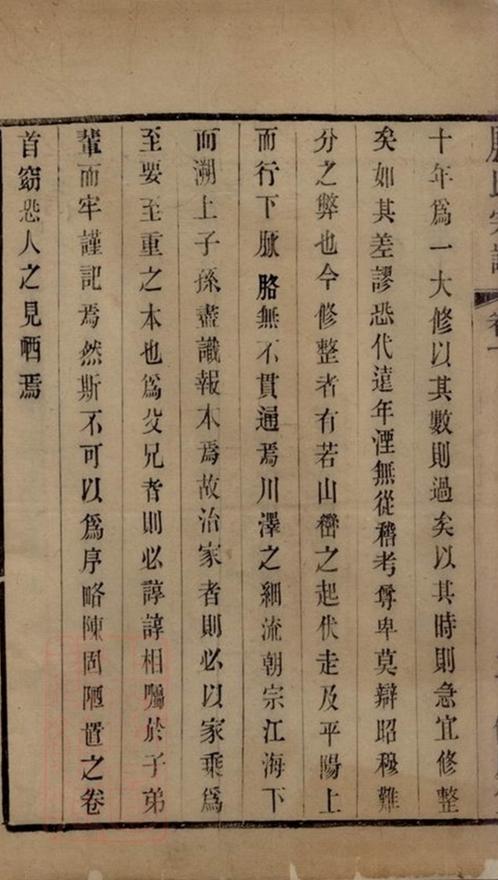 十年爲一大修以其數則過矣以其時則急宜修整
矣如其差謬恐代遠年湮無從稽考尊卑莫辯昭穆難
分之弊也今修整者有若山巒之起伏走及平陽上
而行下脈胳無不貫通焉川澤之細流朝宗江海下
而溯上子孫盡識報本焉故治家者則必以家乘爲
至要至重之本也爲父兄者則必諄諄相囑於子弟
輩而牢謹記焉然斯不可以爲序略陳固陋置之卷
首竊恐人之見哂焉